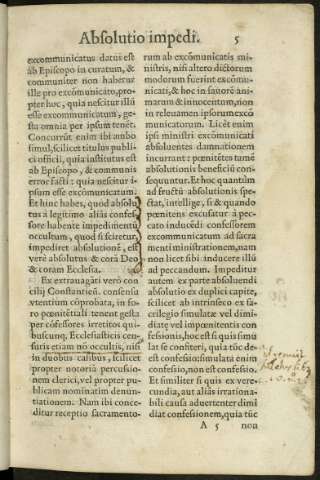 Absolutio impedi. 5
excommunicatus datus est
ab Episcopo in curatum, &
communiter non habetur
ille pro excõmunicato, pro-
pter hoc, quia nescitur illũ
esse excommunicatum, ge-
sta omnia per ipsum tenẽt.
Concurrũt enim ibi ambo
simul, scilicet titulus publi-
ci officij, quia institutus est
ab Episcopo, & communis
error facti: quia nescitur i-
psum esse excõmunicatum.
Et hinc habes, quod absolu
tus à legitimo aliàs confes-
sore habente impedimentũ
occultum, quod si sciretur,
impediret absolutionẽ, est
verè absolutus & corã Deo
& coram Ecclesia.
Ex extrauagãti verò con
cilij Constantieñ. consensu
vtentium cõprobata, in fo-
ro pœnitẽtiali tenent gesta
per cõfessores irretitos qui-
buscunq; Ecclesiasticis cen-
suris etiam nõ occultis, nisi
in duobus casibus, scilicet
propter notoriã percussio-
nem clerici, vel propter pu-
blicam nominatim denun-
tiationem. Nam ibi conce-
ditur receptio sacramento-
rum ab excõmunicatis mi-
nistris, nisi altero dictorum
modorum fuerint excõmu-
nicati, & hoc in fauorẽ ani-
marum & innocentum, non
in releuamen ipsorum excõ
municatorum. Licèt enim
ipsi ministri excõmunicati
absoluentes damnationem
incurrant: pœnitẽtes tamẽ
absolutionis beneficiũ con-
sequuntur. Et hoc quantùm
ad fructũ absolutionis spe-
ctat, intellige, si & quando
pœnitens excusatur à pec-
cato inducẽdi confessorem
excommunicatum ad sacra
menti ministrationem, nam
non licet sibi inducere illũ
ad peccandum. Impeditur
autem ex parte absoluendi
absolutio ex duplici capite,
scilicet ab intrinseco ex sa-
crilegio simulatæ vel dimi-
diatę vel impœnitentis con
fessionis, hoc est si quis simu
lat se confiteri, quia tũc de-
est confessio; simulata enim
confessio, non est confessio.
Et similiter si quis ex vere-
cundia, aut aliàs irrationa-
bili causa aduertenter dimi
diat confessionem, quia tũc
A 5 non